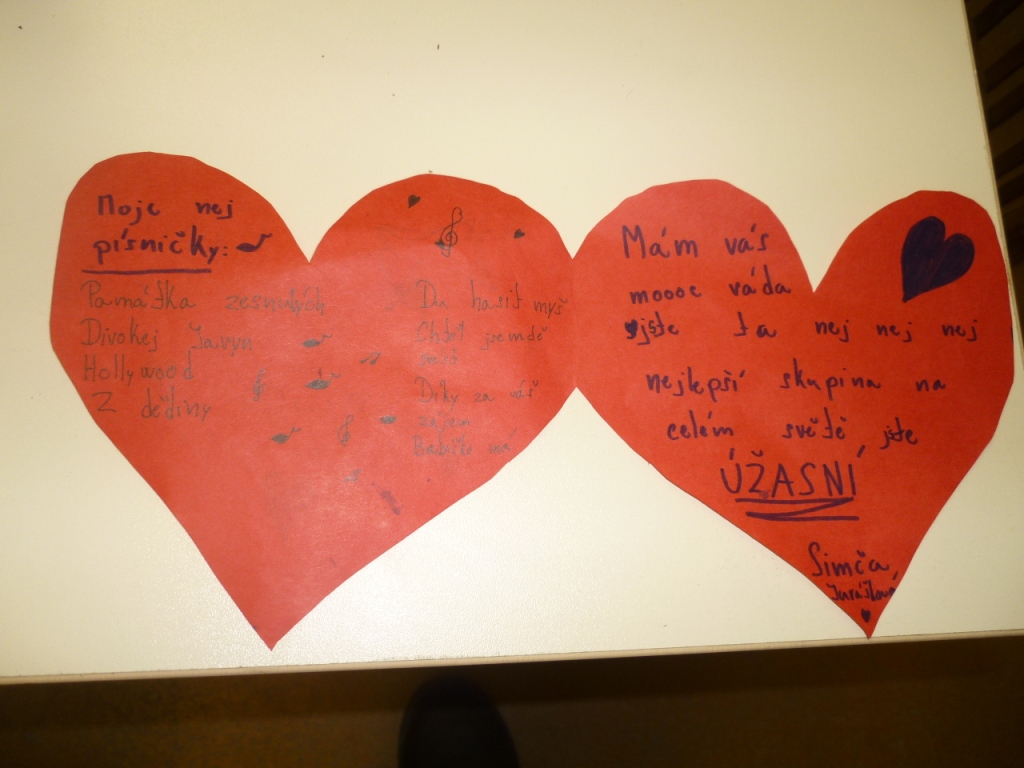 Moje nej
písničky:
Památka zesnulých
Divokej
Hollywood
Z dědiny
hasit myš
Chtěl jsem tě
svést
Díky za váš
zájem
má
Mám vás
moooc ráda
jste ta nej nej nej
nejlepší skupina na
celém světě, jste
ÚŽASNÍ
Simča